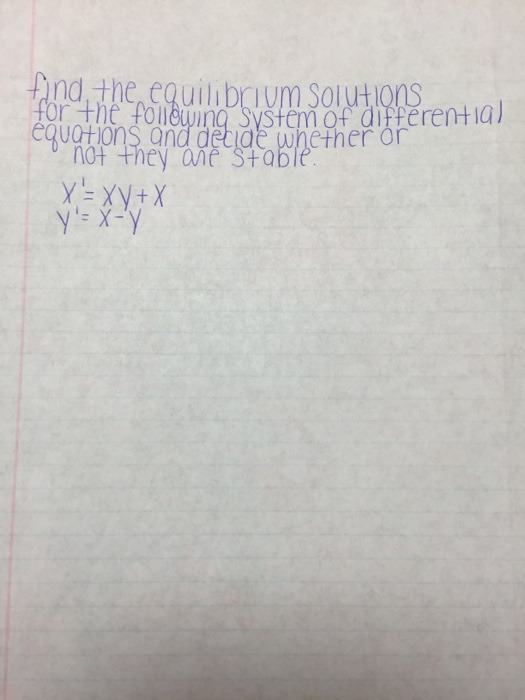 find the equilibrium solutions
for the following system of differential
equations and decide whether or
not they are stable.
x'= xy+x
y'= x-y